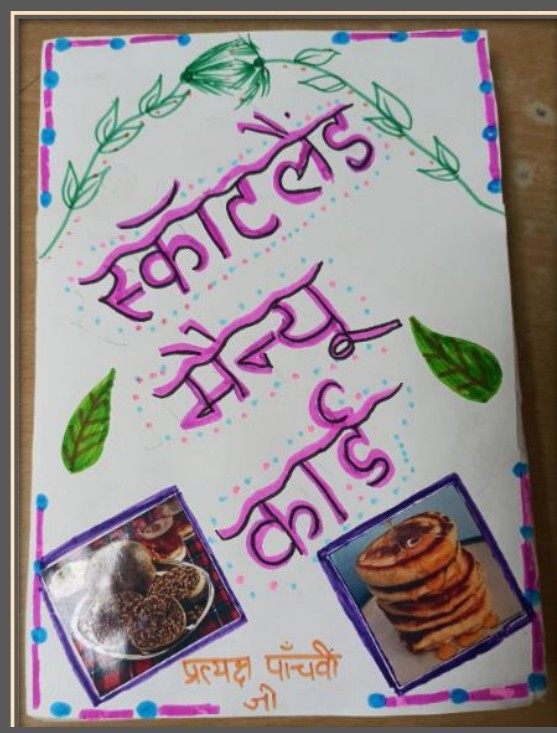 स्कॉटलैंड
मैन्यू
कार्ड
प्रत्यक्ष पाँचवीं
जी